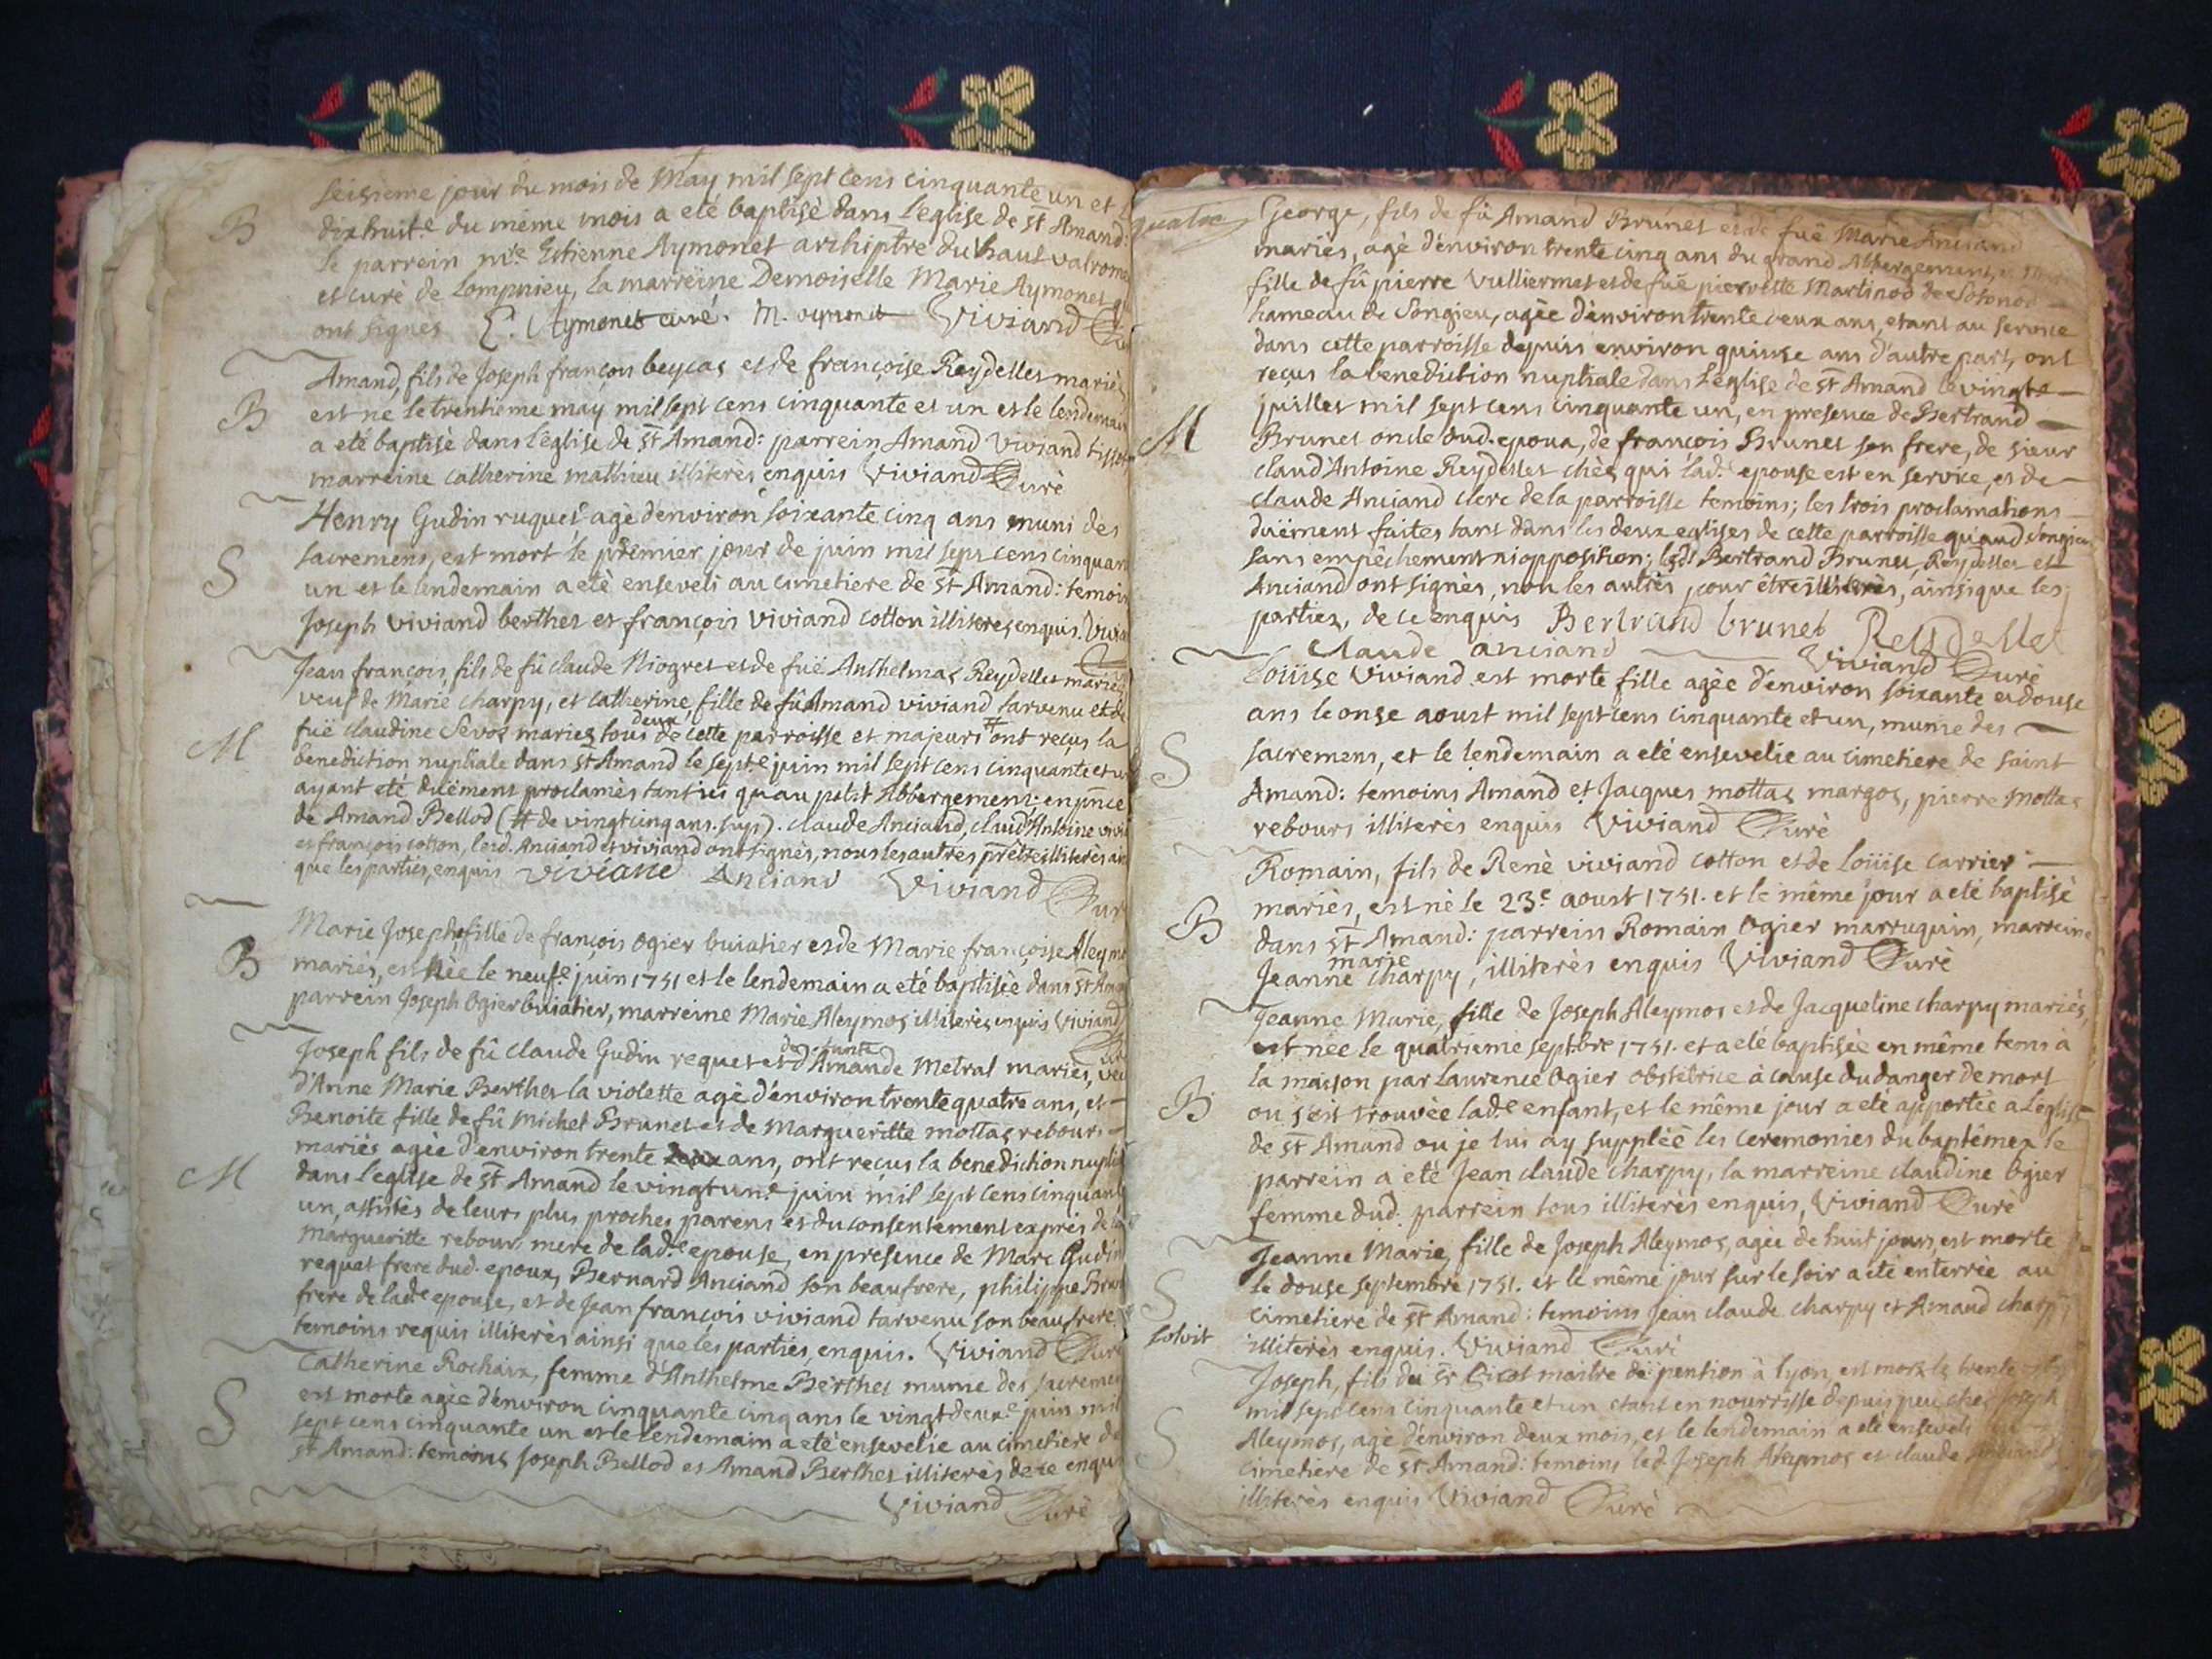 B
seisieme jour du mois de May mil sept cens cinquante un et
dixhuit.e du même mois a eté baptisè dans l'eglise de st Amand:
le parrein mre Estienne Aymonet archiptre du haut valromey
et curè de Lompnieu, la marreine Demoiselle Marie Aymonet qui
ont signes E. Aymonet curé. M. aymonet Viviand Curè
Amand, fils de Joseph françois beycas et de françoise Reydellet mariès
B
est nè le trentieme may mil sept cens cinquante et un et le lendemain
a eté baptisè dans l'eglise de st Amand: parrein Amand Viviand
marreine catherine mathieu illiterès enquis Viviand Curè
Henry Gudin ruquet agè denviron soixante cinq ans muni des
S
sacremens, est mort le premier jour de juin mil sept cens cinquante
un et le lendemain a etè enseveli au cimetiere de st Amand: temoins
Joseph Viviand berthet et françois Viviand cotton illiterès enquis. Viviand
Jean françois, fils de fû claude Niogret et de fuë Anthelmas Reydellet mariès
veuf de Marie charpy, et catherine fille de fû Amand viviand tarvenu et de
fuë claudine Sevoz mariez tous deux de cette parroisse et majeurs # ont reçus la
M
benediction nuptiale dans st Amand le sept.e juin mil sept cens cinquante et un
ayant eté duëment proclamès tant ici qu'au petit Abbergement: en pnce
de Amand Bellod (# de vingt cinq ans. suys). claude Anciand, claud Antoine viviand
et françois cotton, lesd. Anciand et viviand ont signès, non les autres pr être illiterès ainsi
que les parties, enquis viviand Anciand Viviand Curè
Marie Josephe fille de françois Ogier buiatier et de Marie françoise Aleymos
B
mariès, est nèe le neuf.e juin 1751 et le lendemain a etè baptisèe dans st Amand
parrein Joseph Ogier buiatier, marreine Marie Aleymos illiterès enquis Viviand
Curè
Joseph fils de fû claude Gudin requet et de d'Amande Metral mariès, veuf
d'Anne Marie Berthet la violette agè d'environ trente quatre ans, et
Benoite fille de fû Michel Brunet et de Margueritte mottas rebours
mariès agèe d'environ trente ans, ont reçus la benediction nuptiale
M
dans l'eglise de st Amand le vingt un.e juin mil sept cens cinquante
un, assistés de leurs plus proches parens et du consentement exprès de la
Margueritte rebours mere de lad.e epouse, en presence de Marc Gudin
requet frere dud. epoux, Bernard Anciand son beaufrere, philippe Brunet
frere de lad.e epouse, et de Jean françois viviand tarvenu son beaufrere
temoins requis illiterès ainsi que les parties, enquis. Viviand Curè
Catherine Rochaix, femme d'Anthelme Berthet munie des sacremens
S
est morte agèe d'environ cinquante cinq ans le vingt deux.e juin mil
sept cens cinquante un et le lendemain a etè ensevelie au cimetiere de
st Amand: temoins Joseph Bellod et Amand Berthet illiterès de ce enquis
Viviand Curè
quatre
George, fils de fû Amand Brunet et de fuë Marie Anciand
mariès, agè d'environ trente cinq ans du grand Abbergement,
fille de fû pierre Vulliermet et de fuë pierrette Martinod de Sotonod
hameau de Songieu, agèe d'environ trente deux ans, etant au service
dans cette parroisse depuis environ quinse ans d'autre part, ont
reçus la benediction nuptiale dans l'eglise de st Amand le vingt.e
juillet mil sept cens cinquante un, en presence de Bertrand
M
Brunet oncle dud. epoux, de françois Brunet son frere, de sieur
claud'Antoine Reydellet chès qui lad.e epouse est en service, et de
claude Anciand clerc de la parroisse temoins; les trois proclamations
duëment faites tant dans les deux eglises de cette parroisse qu'aud Songieu
sans empêchement ni opposition; lesd Bertrand Brunet, Reydellet et
Anciand ont signès, non les autres pour être illiterès, ainsi que les
parties, de ce enquis Bertrand brunet Reydellet
Claude anciand Viviand Curè
Loüise Viviand est morte fille agèe d'environ soixante et douse
ans le onse aoust mil sept cens cinquante et un, munie des
S
sacremens, et le lendemain a eté ensevelie au cimetiere de saint
Amand: temoins Amand et Jacques mottas margos, pierre Mottas
rebours illiterès enquis Viviand Curè
Romain, fils de Renè viviand cotton et de Loüise carrier
mariès, est nè le 23.e aoust 1751. et le même jour a etè baptisè
B
dans st Amand: parrein Romain Ogier marruquin, marreine
Jeanne marie charpy, illiterès enquis Viviand Curè
Jeanne Marie, fille de Joseph Aleymos et de Jacqueline charpy mariès,
est nèe le quatrieme septbre 1751. et a eté baptisèe en même tems à
la maison par Laurence Ogier obstetrice à cause du danger de mort
B
ou s'est trouvèe lad.e enfant, et le même jour a etè apportèe a l'eglise
de st Amand ou je lui ay supplèé les ceremonies du baptême: le
parrein a eté Jean claude charpy, la marreine claudine Ogier
femme dud. parrein tous illiterès enquis, Viviand Curè
Jeanne Marie, fille de Joseph Aleymos, agèe de huit jours, est morte
S
le douse septembre 1751. et le même jour sur le soir a etè enterrèe au
cimetiere de st Amand: temoins Jean claude charpy et Amand charpy
solvit
illiterès enquis. Viviand Curè
Joseph, fils du sr maitre de pention à lyon, est mort le trente
mil sept cens cinquante et un etant en nourrisse depuis peu ches Joseph
S
Aleymos, agè d'environ deux mois, et le lendemain a etè enseveli au
cimetiere de st Amand: temoins led. Joseph Aleymos et claude Anciand
illiterès enquis Viviand Curè